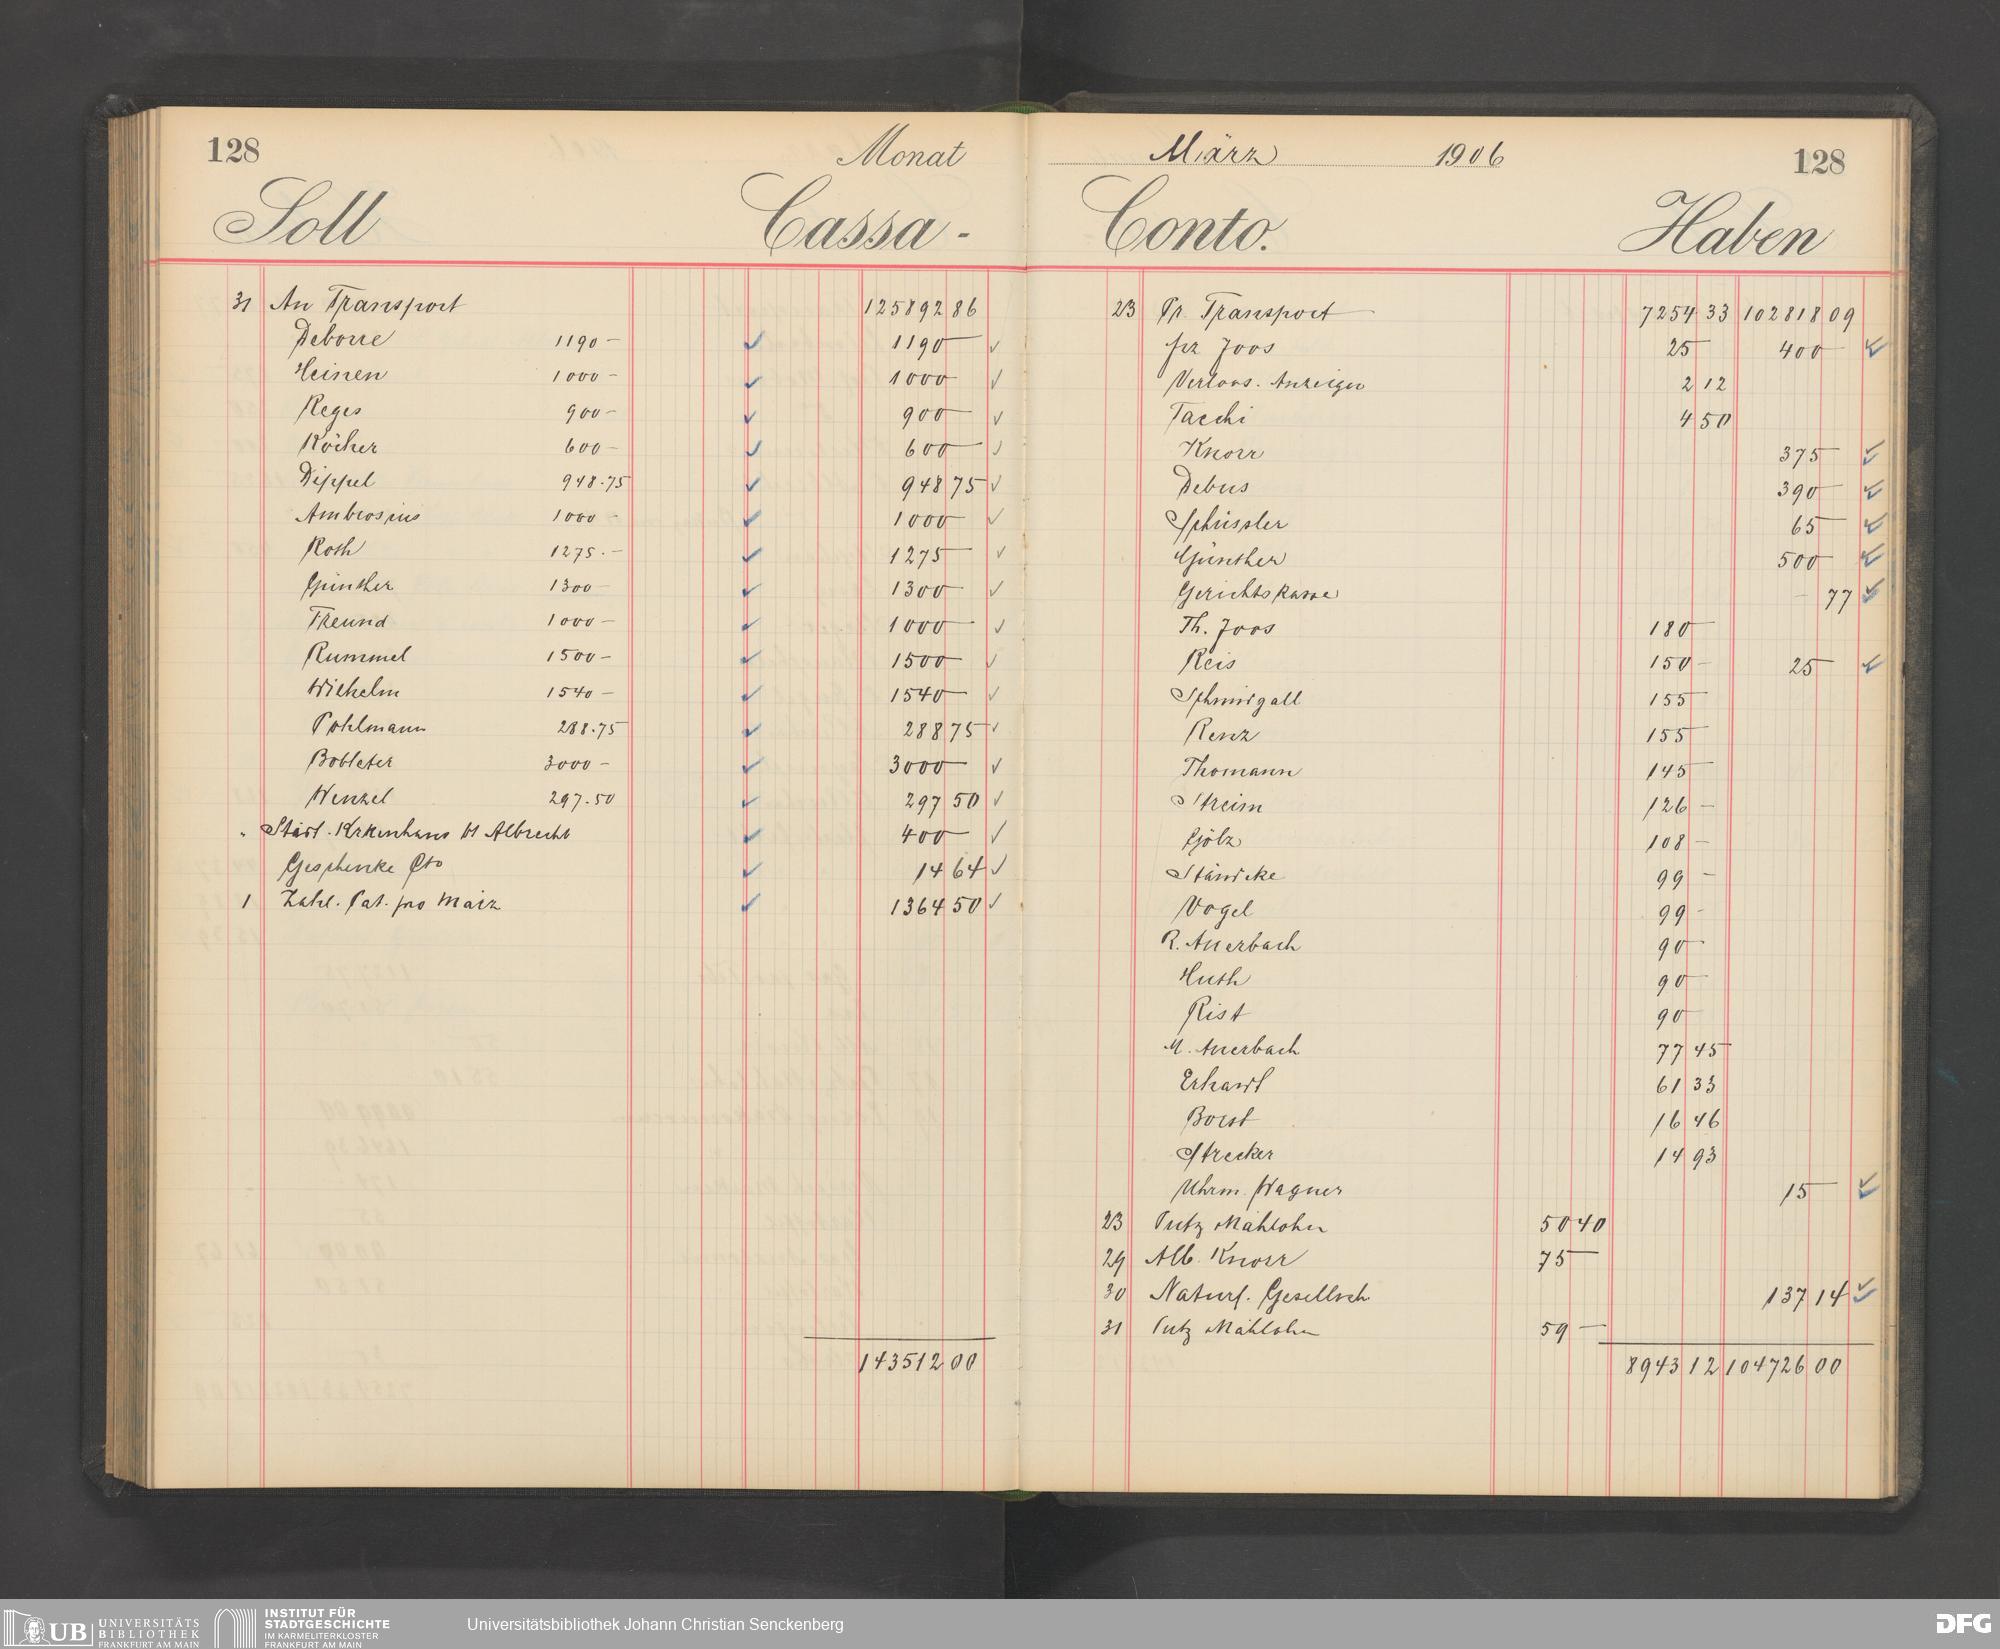 128 Monat
Soll Cassa-
31 An Transport 125892 86
Deborre 1190 – 1190 –
Heinen 1000 – 1000
Reges 900 – 900 –
Köcher 600 – 600 –
Dippel 948.75 948 75
Ambrosius 1000 – 1000 –
Roth 1275.– 1275 –
Günther 1300 – 1300 –
Freund 1000 – 1000 –
Rummel 1500 – 1500 –
Wilhelm 1540 – 1540 –
Pohlmann 288.75 288 75
Bobleter 3000 – 3000 –
Wenzel 297.50 297 50
" Städt. Krkenhaus Albrecht 400 –
Geschenke Cto 14 64
1 Zahl. Pat. pro März 1364 50
143512 00
März 1906 128
Conto. Haben
23 Pr. Transport 7254 33 102818 09
frz Joos 25 – 400 –
Verloos. Anzeiger 2 12
Tacchi 4 50
Knorr 375 –
Debus 390 –
Schüssler 65 –
Günther 500 –
Gerichtskasse – 77
Th. Joos 180 –
Reis 150 – 25 –
Schmidgall 155 –
Renz 155 –
Thomann 145 –
Streim 126 –
Gölz 108 –
Ständcke 99 –
Vogel 99 –
R. Auerbach 90 –
Huth 90 –
Rist 90 –
M. Auerbach 77 45
Erhardt 61 33
Borst 16 46
Strecker 14 93
Uhrm. Wagner 15 –
23 Putz Mählohn 50 40
29 Alb. Knorr 75 –
30 Naturf. Gesellsch. 137 14
31 Putz Mählohn 59 –
8943 12 104726 00
UB UNIVERSITÄTS
BIBLIOTHEK
FRANKFURT AM MAIN
INSTITUT FÜR
STADTGESCHICHTE
IM KARMELITERKLOSTER
FRANKFURT AM MAIN
Universitätsbibliothek Johann Christian Senckenberg
DFG